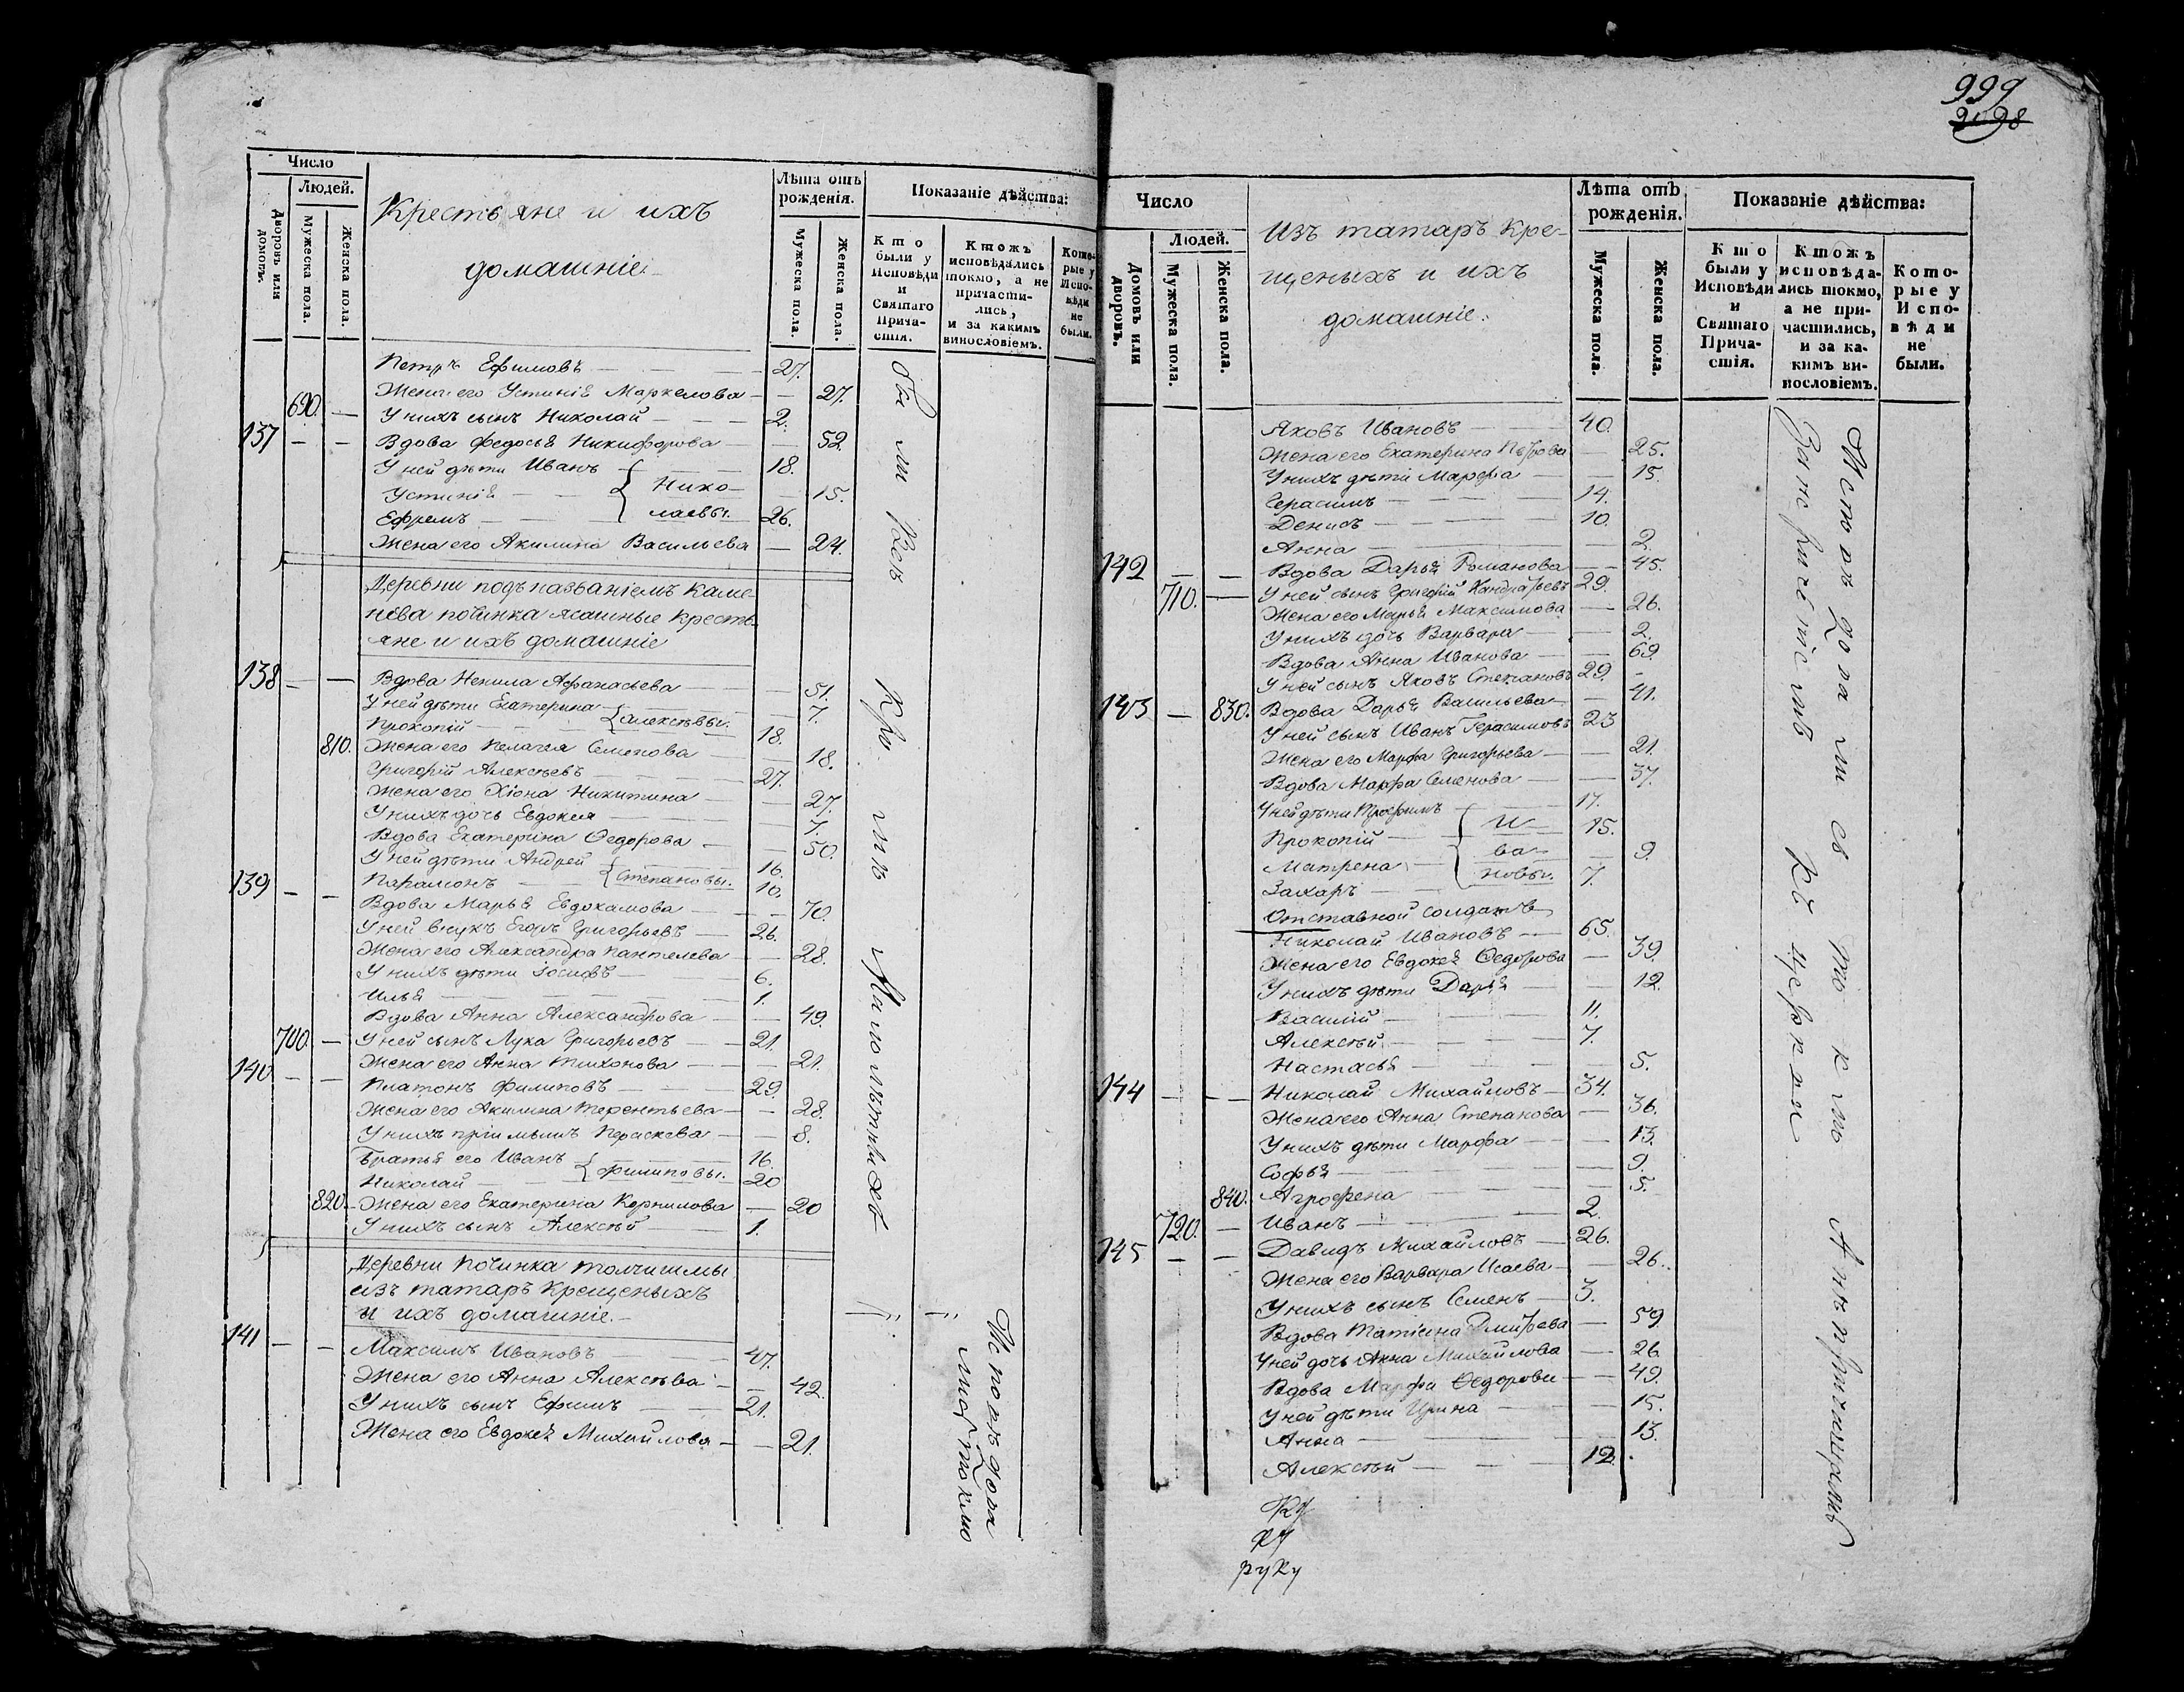 Число
Людей.
Дворовъ или домовъ.
Мужеска пола.
Женска пола.
Крестьяне и ихъ
домашніе.
Лѣта отъ рожденія.
Мужеска пола.
Женска пола.
Показаніе дѣйства:
Кто были у Исповѣди и Святаго Причастія.
Ктожъ исповѣдались токмо, а не причастились, и за какимъ винословіемъ.
Которые у Исповѣди не были.
Петръ Ефимовъ — 27.
Жена его Устинія Маркелова — 27.
690. — У нихъ сынъ Николай — 2.
137 — — Вдова Федосья Никифорова — 52.
У ней дѣти Иванъ — 18.
Устинія — Нико — 15.
Ефремъ — лаевы. 26.
Жена его Акилина Васильева — 24.
Деревни подъ названіемъ Каме-
нева починка ясашные кресть-
яне и ихъ домашніе
138 — — Вдова Ненила Афанасьева — 51.
У ней дѣти Екатерина — 7.
Прокопій — Алексѣевы. 18.
810. Жена его Пелагея Семенова 18.
Григорій Алексѣевъ — 27.
Жена его Хіона Никитина — 27.
У нихъ дочь Евдокея — 7.
Вдова Екатерина Ѳедорова — 50.
У ней дѣти Андрей — 16.
Парамонъ — Степановы. 10.
139 — — Вдова Марья Евдокамова — 70.
У ней внукъ Егоръ Григорьевъ — 26.
Жена его Александра Пантелева — 28.
У нихъ дѣти Іосифъ — 6.
Илья — 1.
Вдова Анна Александрова — 49.
700. — У ней сынъ Лука Григорьевъ — 21.
Жена его Анна Тихонова — 21.
140 — — Платонъ Филиповъ — 29.
Жена его Акилина Терентьева — 28.
У нихъ пріимышъ Параскева — 8.
Братья его Иванъ — 16.
Николай — Филиповы. 20
820. Жена его Екатерина Корнилова — 20
У нихъ сынъ Алексѣй — 1.
Деревни Починка
изъ татаръ крещеныхъ
и ихъ домашніе.
141 — — Максимъ Ивановъ — 47.
Жена его Анна Алексѣва — 42.
У нихъ сынъ Ефимъ — 21.
Жена его Евдокея Михайлова — 21.
Были Всѣ Кромѣ Малолѣтныхъ
Исповѣдова
лис токмо
999
Число
Людей.
Домовъ или дворовъ.
Мужеска пола.
Женска пола.
Изъ татаръ кре-
щеныхъ и ихъ
домашніе.
Лѣта отъ рожденія.
Мужеска пола.
Женска пола.
Показаніе дѣйства:
Кто были у Исповѣди и Святаго Причастія.
Ктожъ исповѣдались токмо, а не причастились, и за какимъ винословіемъ.
Которые у Исповѣди не были.
Яковъ Ивановъ — 40.
Жена его Екатерина Петрова — 25.
У нихъ дѣти Марфа — 15.
Герасимъ — 14.
Денисъ — 10.
Анна — 2.
142 — — Вдова Дарья Романова — 45.
710. — У ней сынъ Григорій Кандратьевъ 29.
Жена его Марья Максимова — 26.
У нихъ дочь Варвара — 2.
Вдова Анна Иванова — 69.
У ней сынъ Яковъ Степановъ 29.
143 — 830. Вдова Дарья Васильева — 41.
У ней сынъ Иванъ Герасимовъ 23
Жена его Марфа Григорьева — 21.
Вдова Марфа Семенова — 37.
У ней дѣти Трофимъ — 17.
Прокопій — И — 15.
Матрена — ва — 9.
Захаръ — новы. 7.
Отставной солдатъ
Николай Ивановъ — 65.
Жена его Евдокея Ѳедорова — 39.
У нихъ дѣти Дарья — 12.
Василій — 11.
Алексѣй — 7.
Настасья — 5.
144 — — Николай Михайловъ — 34.
Жена его Анна Степанова — 36.
У нихъ дѣти Марфа — 13.
Софья — 9.
840. Агрофена — 5.
720. — Иванъ — 2.
145 — — Давидъ Михайловъ — 26.
Жена его Варвара Исаева — 26.
У нихъ сынъ Семенъ — 3.
Вдова Татіана Дмитрева — 59.
У ней дочь Анна Михайлова — 26.
Вдова Марфа Ѳедорова — 49.
У ней дѣти Ирина — 15.
Анна — 13.
Алексѣй — 12.
Исповѣдовались токмо А не причащались
къ церкви
руку